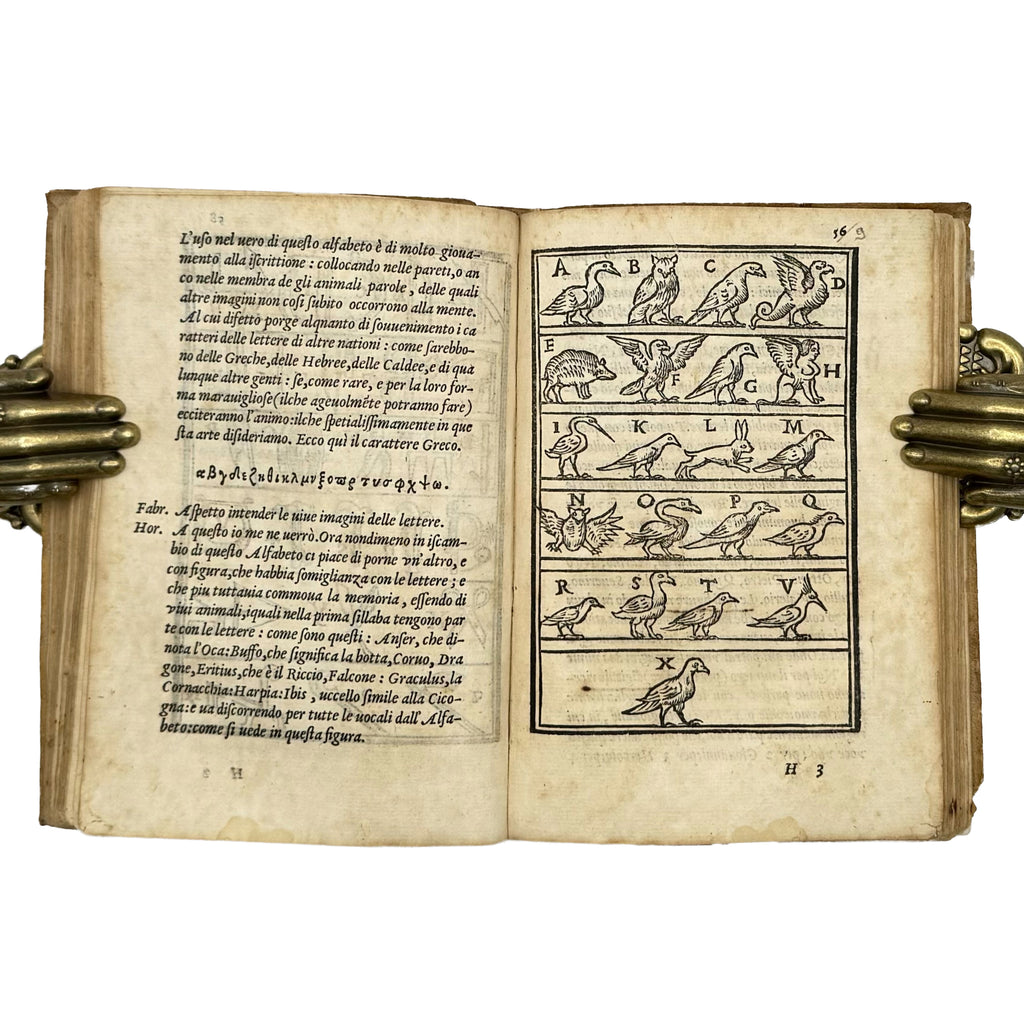 L'uſo nel uero di queſto alfabeto è di molto gioua-
mento alla iſcrittione : collocando nelle pareti, o an
co nelle membra de gli animali parole , delle quali
altre imagini non coſi ſubito occorrono alla mente.
Al cui difetto porge alquanto di ſouuenimento i ca
ratteri delle lettere di altre nationi : come ſarebbo-
no delle Greche, delle Hebree, delle Caldee, e di qua
lunque altre genti : ſe, come rare, e per la loro for-
ma marauiglioſe (ilche ageuolmẽte potranno fare)
ecciteranno l'animo: ilche ſpetialiſſimamente in que
ſta arte diſideriamo. Ecco quì il carattere Greco.
αβγδεζηθικλμνξοπρτυσφχψω.
Fabr. Aſpetto intender le uiue imagini delle lettere.
Hor. A queſto io me ne uerrò. Ora nondimeno in iſcam-
bio di queſto Alfabeto ci piace di porne vn'altro, e
con figura, che habbia ſomiglianza con le lettere ; e
che piu tuttauia commoua la memoria , eſſendo di
viui animali, iquali nella prima ſillaba tengono par
te con le lettere : come ſono queſti : Anſer, che di-
nota l'Oca: Buffo, che ſignifica la botta, Coruo, Dra
gone, Eritius, che è il Riccio, Falcone : Graculus, la
Cornacchia: Harpia: Ibis , uccello ſimile alla Cico-
gna: e ua diſcorrendo per tutte le uocali dall'Alfa-
beto: come ſi uede in queſta figura.
56 9
A B C D
E F G H
I K L M
N O P Q
R S T V
X
H 3